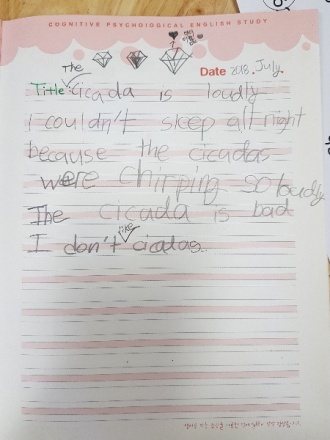 COGNITIVE PSYCHOLOGICAL ENGLISH STUDY
Date 2018. July.
The
Title: Cicada is loudly
I couldn't sleep all night
because the cicadas
were chirping so loudly
The cicada is bad
I don't like cicadas.